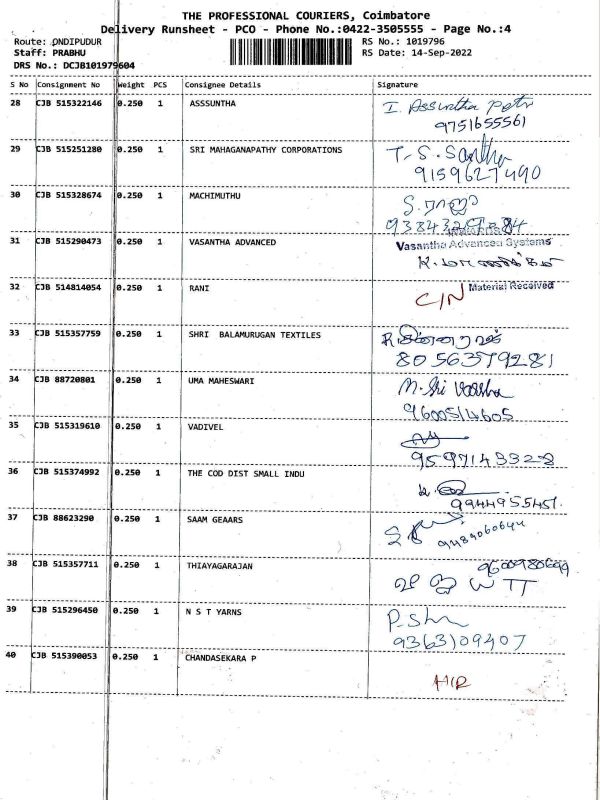 THE PROFESSIONAL COURIERS, Coimbatore
Delivery Runsheet - PCO - Phone No.:0422-3505555 - Page No.:4
Route: ONDIPUDUR RS No.: 1019796
Staff: PRABHU RS Date: 14-Sep-2022
DRS No.: DCJB101979604
S No Consignment No Weight PCS Consignee Details Signature
28 CJB 515322146 0.250 1 ASSSUNTHA I. Assuntha
9751655561
29 CJB 515251280 0.250 1 SRI MAHAGANAPATHY CORPORATIONS T.S.
9159627490
30 CJB 515328674 0.250 1 MACHIMUTHU S. ராஜா
31 CJB 515290473 0.250 1 VASANTHA ADVANCED Vasantha Advanced Systems
32 CJB 514814054 0.250 1 RANI Material Received
C/N
33 CJB 515357759 0.250 1 SHRI BALAMURUGAN TEXTILES
8056379281
34 CJB 88720801 0.250 1 UMA MAHESWARI M. Sri
9600514605
35 CJB 515319610 0.250 1 VADIVEL
9597143328
36 CJB 515374992 0.250 1 THE COD DIST SMALL INDU
9944955451
37 CJB 88623290 0.250 1 SAAM GEAARS
9489060644
38 CJB 515357711 0.250 1 THIAYAGARAJAN 9600980699
39 CJB 515296450 0.250 1 N S T YARNS
9363109407
40 CJB 515390053 0.250 1 CHANDASEKARA P